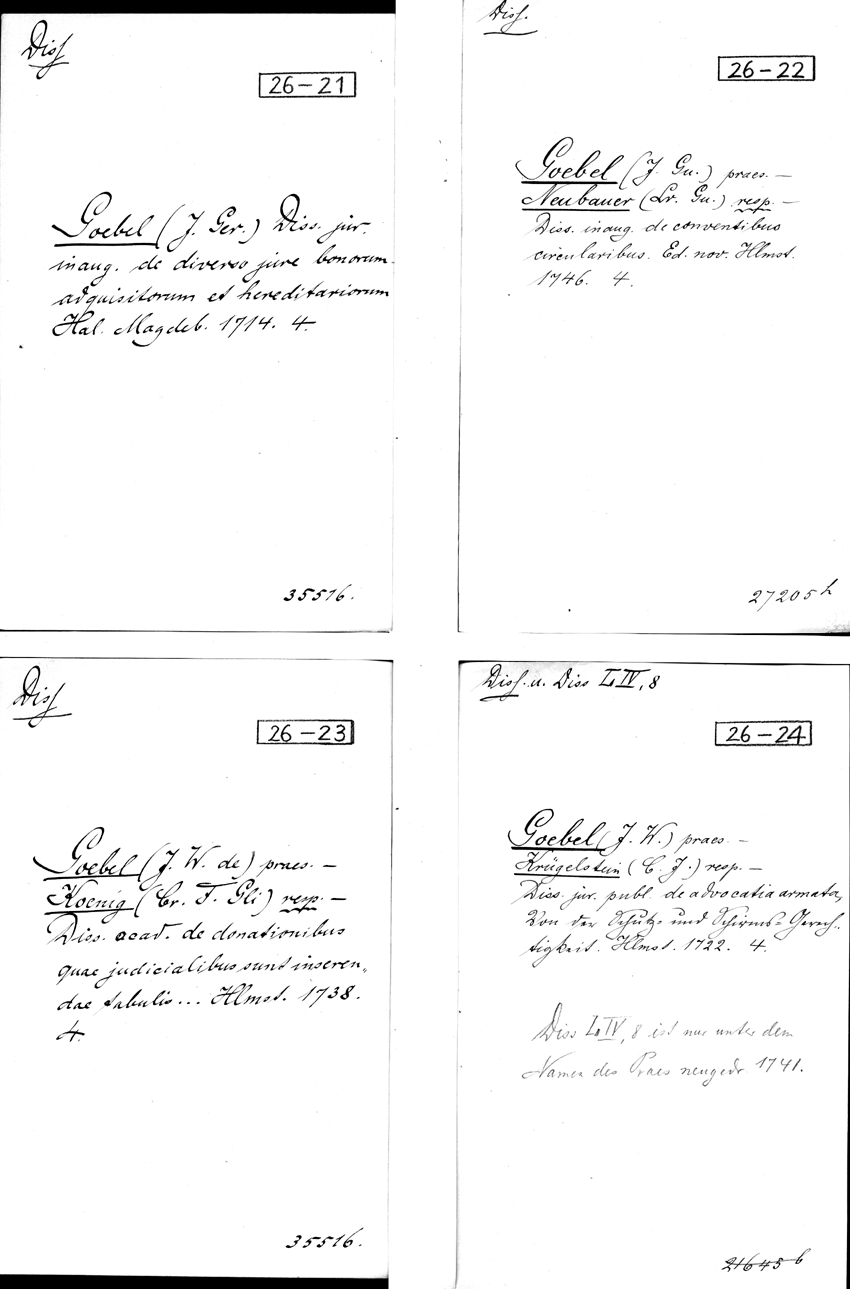 Diss
26-21
Goebel (J. Ger.) Diss. jur.
inaug. de diverso jure bonorum
adquisitorum et hereditariorum
Hal. Magdeb. 1714. 4.
35516.
Diss.
26-22
Goebel (J. Gu.) praes. —
Neubauer (Lr. Gu.) resp. —
Diss. inaug. de conventibus
circularibus. Ed. nov. Hlmst.
1746. 4.
27205h
Diss
26-23
Goebel (J. W. de) praes. —
Koenig (Cr. F. Gli) resp. —
Diss. acad. de donationibus
quae judicialibus sunt inseren„
dae tabulis... Hlmst. 1738.
4.
35516.
Diss. u. Diss L IV, 8
26-24
Goebel (J. W.) praes. —
Krügelstein (C. J.) resp. —
Diss. jur. publ. de advocatia armata,
Von der Schutz- und Schirms-Gerech-
tigkeit. Hlmst. 1722. 4.
Diss L IV, 8 ist nur unter dem
Namen des Praes neugedr 1741.
21645b